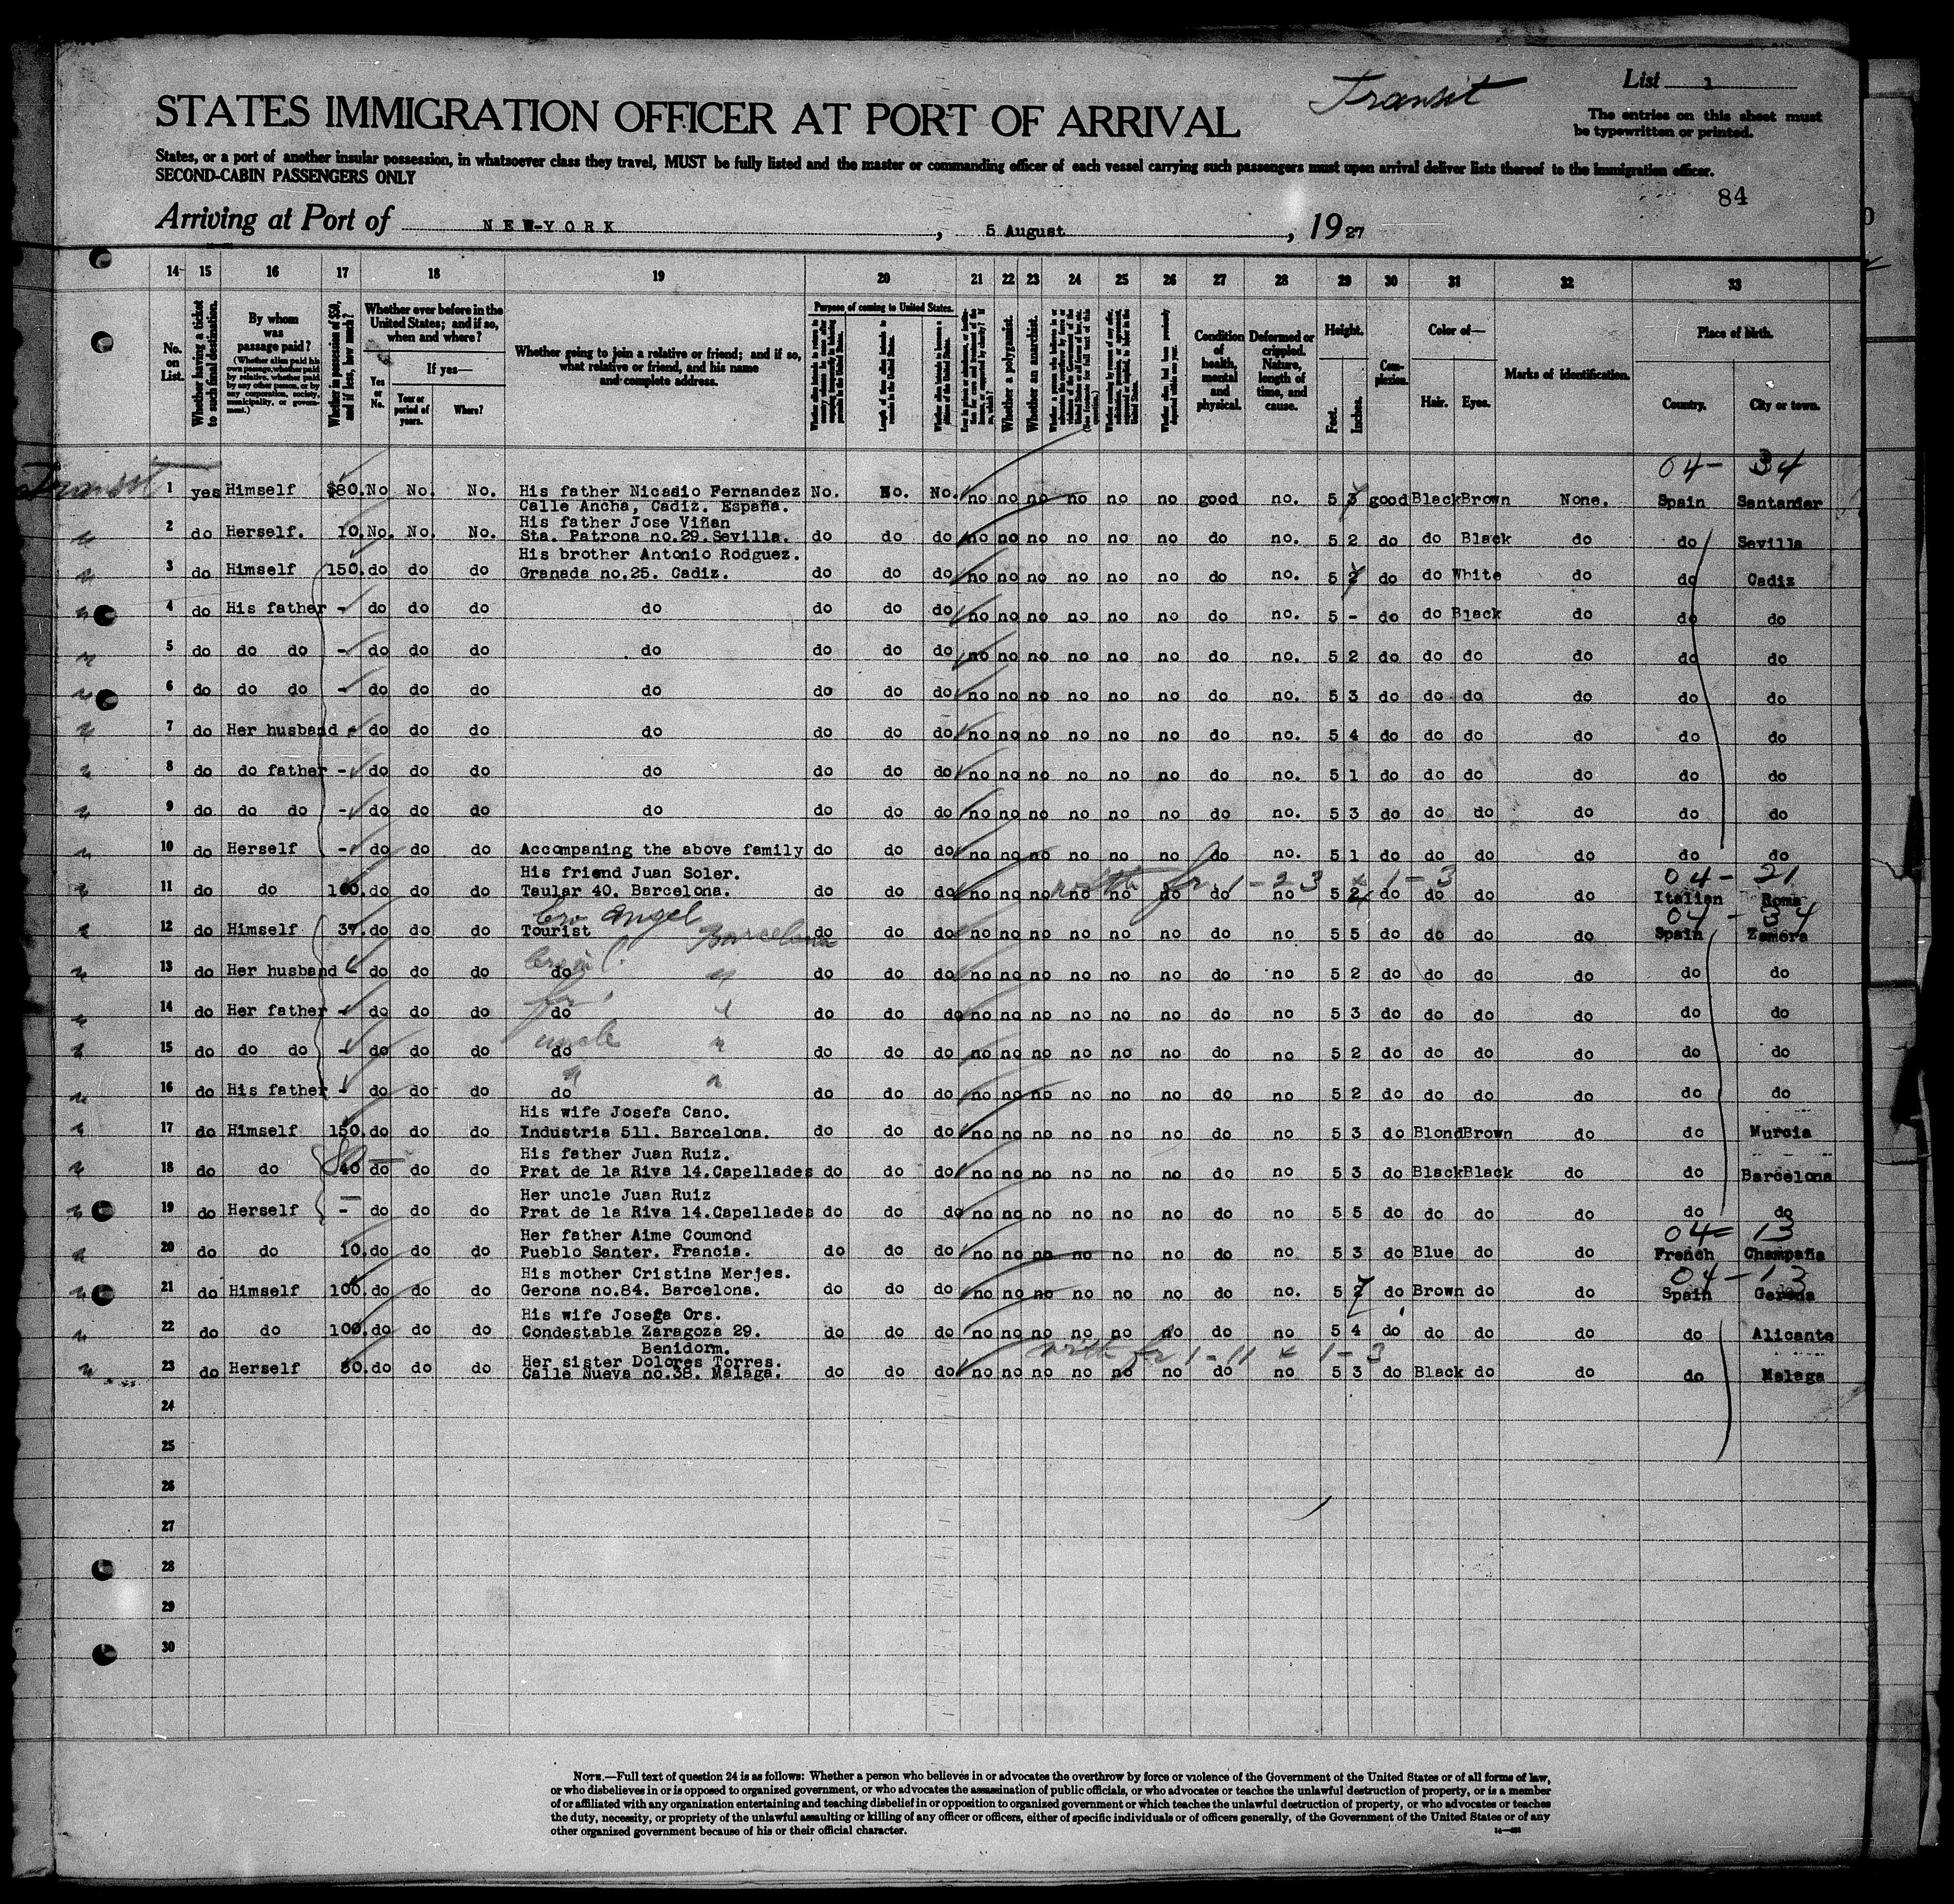 Transit
List 1
The entries on this sheet must
be typewritten or printed.
STATES IMMIGRATION OFFICER AT PORT OF ARRIVAL
States, or a port of another insular possession, in whatsoever class they travel, MUST be fully listed and the master or commanding officer of each vessel carrying such passengers must upon arrival deliver lists thereof to the immigration officer.
SECOND-CABIN PASSENGERS ONLY
84
Arriving at Port of NEW-YORK, 5 August, 1927
14 15 16 17 18 19 20 21 22 23 24 25 26 27 28 29 30 31 32 33
No. on List.
Whether having a ticket to such final destination.
By whom was passage paid?
(Whether alien paid his own passage, whether paid by relative, whether paid by any other person, or by any corporation, society, municipality, or government.)
Whether in possession of $50, and if less, how much?
Whether ever before in the United States; and if so, when and where?
Yes or No.
If yes—
Year or period of years.
Where?
Whether going to join a relative or friend; and if so, what relative or friend, and his name and complete address.
Purpose of coming to United States.
Whether a polygamist.
Whether an anarchist.
Condition of health, mental and physical.
Deformed or crippled. Nature, length of time, and cause.
Height.
Feet. Inches.
Complexion.
Color of—
Hair. Eyes.
Marks of identification.
Place of birth.
Country. City or town.
04- 34
Transit 1 yes Himself $80. No No. No. His father Nicasio Fernandez No. No. No. no no no no no no good no. 5 3 good Black Brown None. Spain Santander
Calle Ancha, Cadiz. España.
His father Jose Viñan
2 do Herself. 10. No. No. No. Sta. Patrona no.29.Sevilla. do do do no no no no no no do no. 5 2 do do Black do do Sevilla
His brother Antonio Rodguez.
3 do Himself 150. do do do Granada no.25. Cadiz. do do do no no no no no no do no. 5 2 do do White do do Cadiz
4 do His father - do do do do do do do no no no no no no do no. 5 - do do Black do do do
5 do do do - do do do do do do do no no no no no no do no. 5 2 do do do do do do
6 do do do - do do do do do do do no no no no no no do no. 5 3 do do do do do do
7 do Her husband - do do do do do do do no no no no no no do no. 5 4 do do do do do do
8 do do father - do do do do do do do no no no no no no do no. 5 1 do do do do do do
9 do do do - do do do do do do do no no no no no no do no. 5 3 do do do do do do
10 do Herself - do do do Accompaning the above family do do do no no no no no no do no. 5 1 do do do do do do
His friend Juan Soler. 1-23 & 1-3 04- 21
11 do do 100. do do do Taular 40. Barcelona. do do do no no no no no no do no 5 2 do do do do Italian Roma
Angel 04 - 34
12 do Himself 37. do do do Tourist Barcelona do do do no no no no no no do no 5 5 do do do do Spain Zamora
13 do Her husband do do do do do do do no no no no no no do no 5 2 do do do do do do
14 do Her father - do do do do do do do no no no no no no do no 5 3 do do do do do do
uncle
15 do do do - do do do do do do do no no no no no no do no 5 2 do do do do do do
16 do His father - do do do do do do do no no no no no no do no 5 2 do do do do do do
His wife Josefa Cano.
17 do Himself 150. do do do Industria 511. Barcelona. do do do no no no no no no do no 5 3 do Blond Brown do do Murcia
His father Juan Ruiz.
18 do do 40 do do do Prat de la Riva 14.Capellades do do do no no no no no no do no 5 3 do Black Black do do Barcelona
Her uncle Juan Ruiz
19 do Herself - do do do Prat de la Riva 14.Capellades do do do no no no no no no do no 5 5 do do do do do do
Her father Aime Coumond 04- 13
20 do do 10. do do do Pueblo Santer. Francia. do do do no no no no no no do no. 5 3 do Blue do do French Champaña
His mother Cristina Merjes. 04-13
21 do Himself 100. do do do Gerona no.84. Barcelona. do do do no no no no no no do no. 5 7 do Brown do do Spain Gerona
His wife Josega Ors.
22 do do 100. do do do Condestable Zaragoza 29. do do do no no no no no no do no 5 4 do do do do do Alicante
Benidorm. 1-11 & 1-3
Her sister Dolores Torres.
23 do Herself 80. do do do Calle Nueva no.38. Malaga. do do do no no no no no no do no 5 3 do Black do do do Malaga
24
25
26
27
28
29
30
NOTE.—Full text of question 24 is as follows: Whether a person who believes in or advocates the overthrow by force or violence of the Government of the United States or of all forms of law,
or who disbelieves in or is opposed to organized government, or who advocates the assassination of public officials, or who advocates or teaches the unlawful destruction of property, or is a member
of or affiliated with any organization entertaining and teaching disbelief in or opposition to organized government or which teaches the unlawful destruction of property, or who advocates or teaches
the duty, necessity, or propriety of the unlawful assaulting or killing of any officer or officers, either of specific individuals or of officers generally, of the Government of the United States or of any
other organized government because of his or their official character.